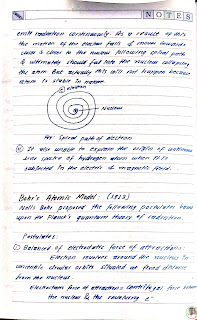 NOTES
emit radiation continuously. As a result of this
the motion of the electron falls & moves towards
and & closer to the nucleus following spiral path
& ultimately should fall into the nucleus collapsing
the atom. But actually this will not happen because
atom is stable in nature.
electron
Nucleus
Fig: Spiral path of electron
It also unable to explain the origin of
line spectra of hydrogen atom when it is
subjected to the electric & magnetic field.
Bohr's Atomic Model: (1913)
Neils Bohr proposed the following postulates based
upon the Planck's quantum theory of radiation.
Postulates:
① Balanced of electrostatic force of attractions:
Electron revolves around the nucleus in
concentric circular orbits situated at fixed distance
from the nucleus.
Electrostatic force of attraction = Centrifugal force between
the nucleus & the revolving e⁻